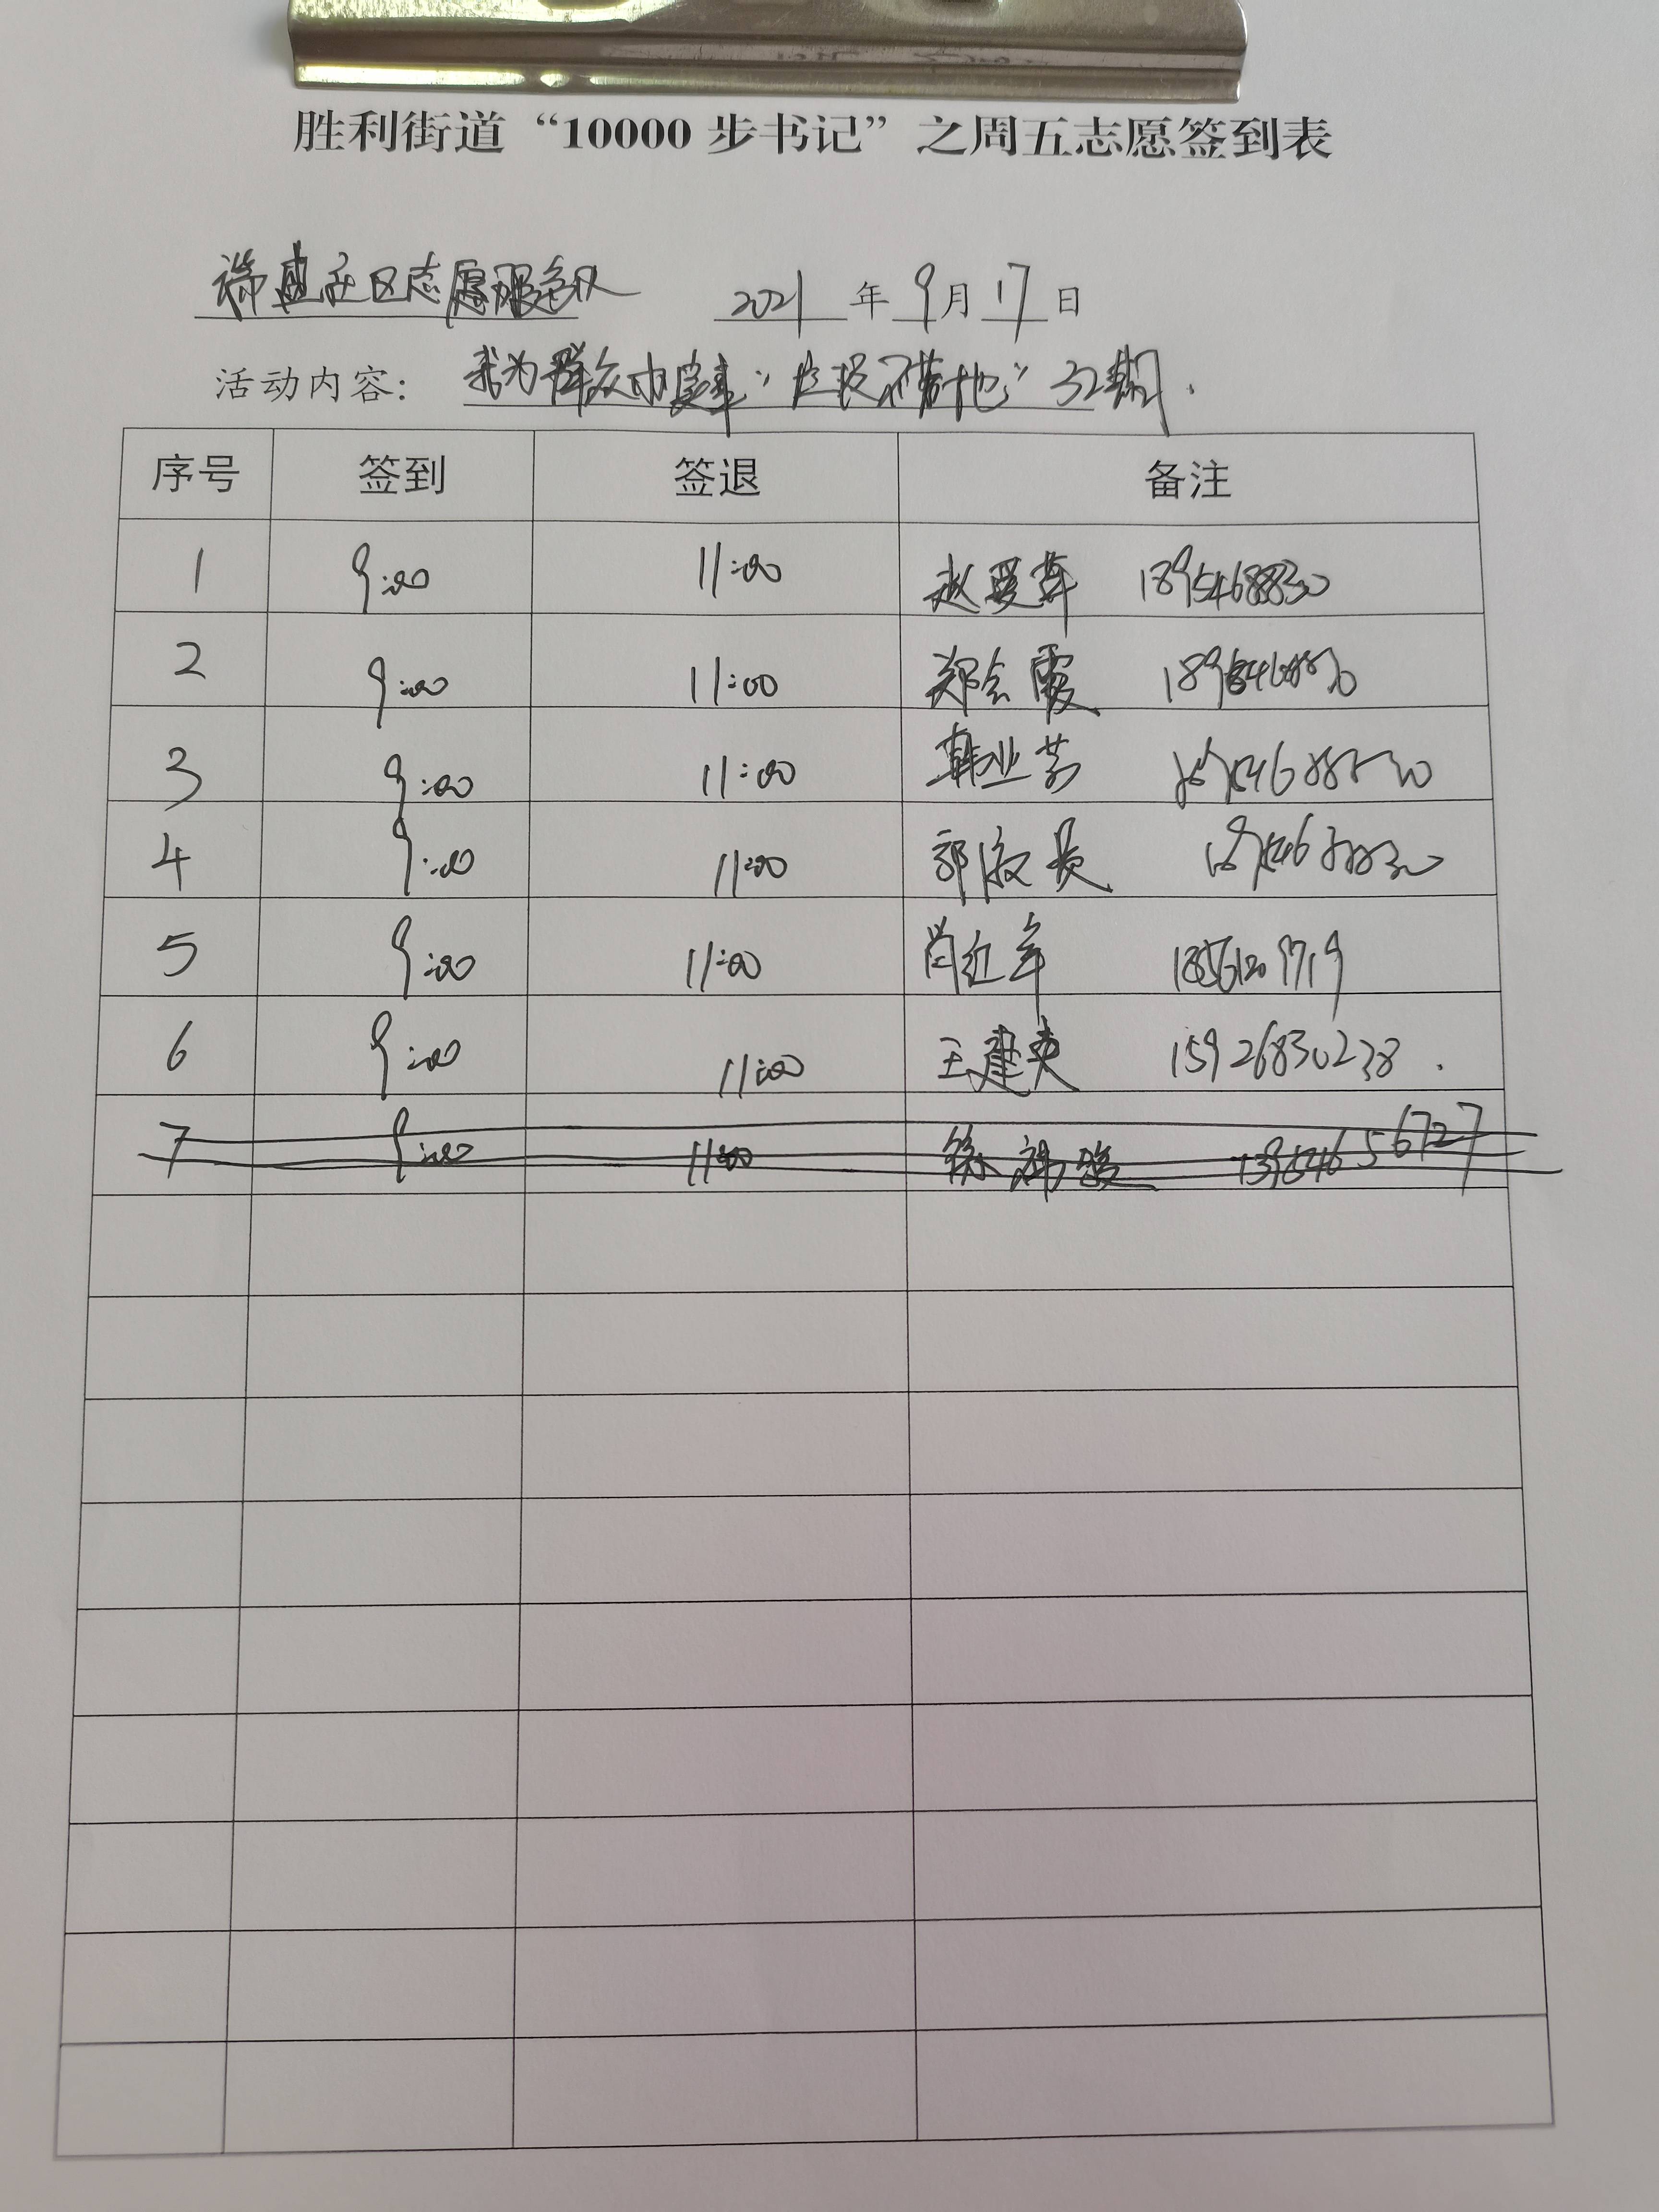 胜利街道“10000步书记”之周五志愿签到表
社区志愿服务队 2021年9月17日
活动内容：我为群众办实事“垃圾不落地”32期.
序号 签到 签退 备注
1 9:00 11:00 赵爱萍 18954688830
2 9:00 11:00 郑会霞
3 9:00 11:00 韩业芳
4 9:00 11:00 郭
5 9:00 11:00
6 9:00 11:00 王建 15926830238.
7 9:00 11:00 徐 13954656727